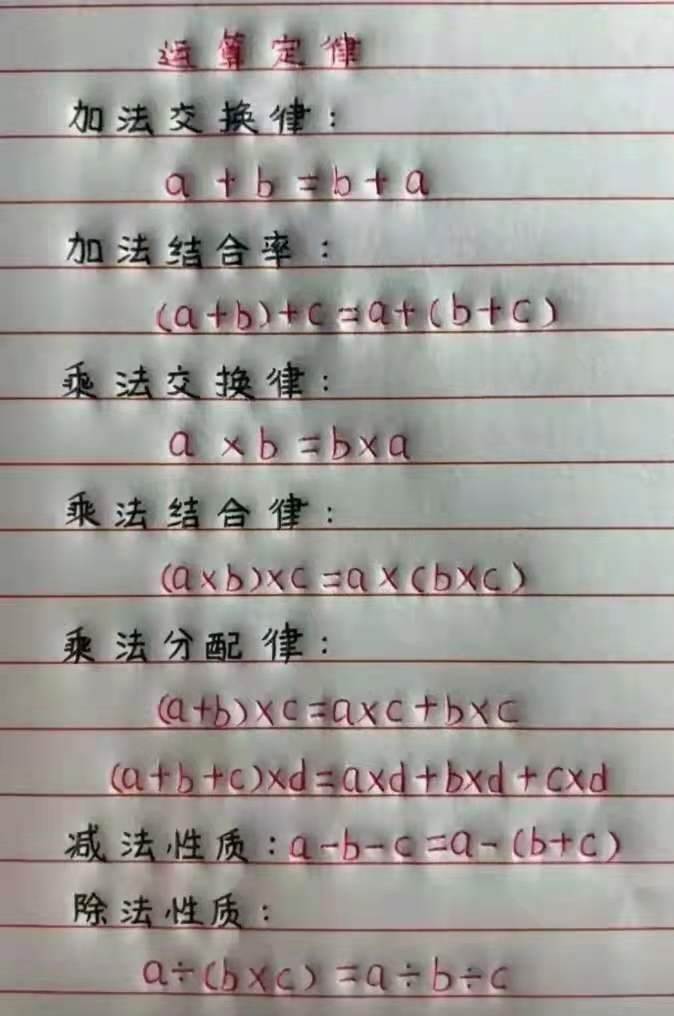 运算定律
加法交换律：
a + b = b + a
加法结合率：
(a+b)+c=a+(b+c)
乘法交换律：
a × b = b×a
乘法结合律：
(a×b)×c=a×(b×c)
乘法分配律：
(a+b)×c=a×c+b×c
(a+b+c)×d=a×d+b×d+c×d
减法性质：a-b-c=a-(b+c)
除法性质：
a÷(b×c)=a÷b÷c